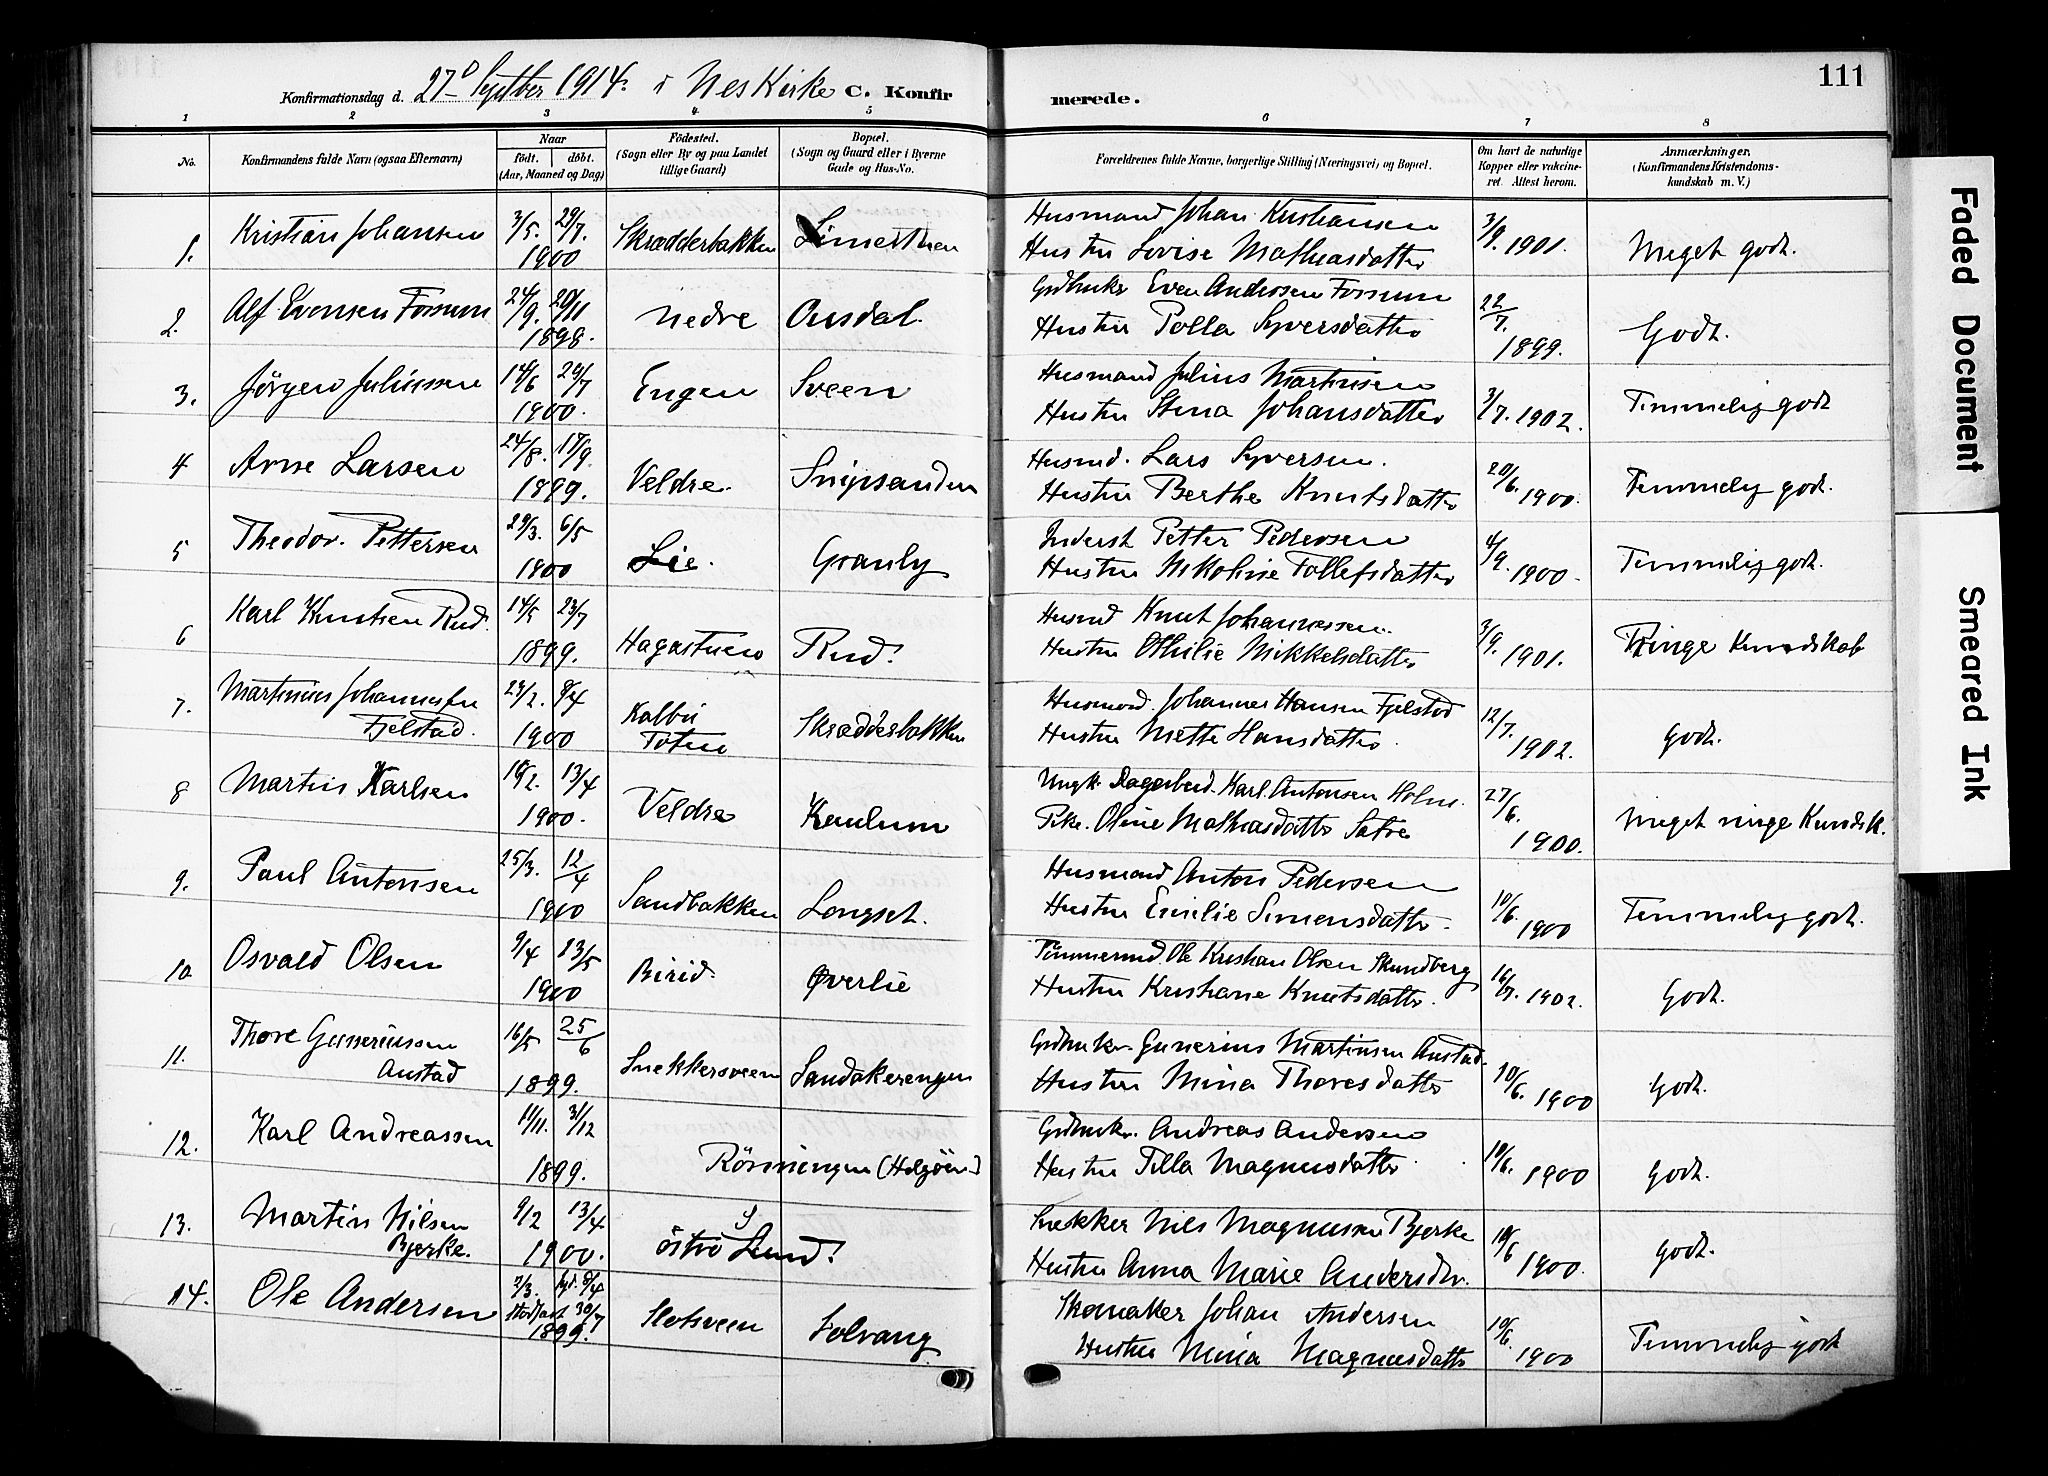 Konfirmationsdag d. 27d Septber 1914. i Nes Kirke C. Konfir merede. 111
1 2 3 4 5 6 7 8
No. Konfirmandens fulde Navn (ogsaa Efternavn) Naar født. døbt. (Aar, Maaned og Dag) Fødested. (Sogn eller By og paa Landet tillige Gaard) Bopæl. (Sogn og Gaard eller i Byerne Gade og Hus-No. Forældrenes fulde Navne, borgerlige Stilling (Næringsvei) og Bopæl. Om havt de naturlige Kopper eller vakcineret. Attest herom. Anmærkninger. (Konfirmandens Kristendomskundskab m. V.)
1. Kristian Johansen 3/5. 29/7. 1900 Skrædderbakken Husmand Johan Kristiansen
Hustru Lovise Mathiasdatter 3/9. 1901. Meget godt.
2. Alf Evensen Fossum 24/9. 20/11 1898. nedre Ousdal. Gdbruker Even Andersen Fossum
Hustru Polla Syversdatter 22/7. 1899. Godt.
3. Jörgen Juliussen 14/6 29/7 1900. Engen Sveen Husmand Julius Martinsen
Hustru Stina Johansdatter 3/7. 1902. Temmelig godt
4 Arne Larsen 24/8. 17/9. 1899. Veldre. Snipsanden Husmd. Lars Syversen.
Hustru Berthe Knutsdatter 20/6. 1900. Temmelig godt.
5 Theodor. Pettersen 29/3. 6/5 1900 Lie. Granly Inderst Petter Pedersen
Hustru Nikoline Tollefsdatter 4/9. 1900. Temmelig godt.
6 Karl Knutsen Rud. 14/5 23/7 1899. Hagastuen Rud. Husmd Knut Johannessen.
Hustru Othilie Mikkelsdatter 3/9. 1901. Ringe Kundskab
7. Martinius Johannesen Fjelstad. 23/2. 8/4 1900 Kolbu Toten Skrædderbakken Husmand. Johannes Hansen Fjelstad
Hustru Mette Hansdatter. 12/7. 1902. Godt.
8 Martin Karlsen 18/2. 13/4 1900. Veldre Kaulum Ungk. Dagarbeid. Karl Antonsen Holm.
Pike. Oline Mathiasdatter Sætre 27/6. 1900. Meget ringe Kundsk.
9. Paul Antonsen 25/3. 12/4 1900 Sandbakken Longset. Husmand Anton Pedersen
Hustru Emilie Simensdatter. 10/6. 1900 Temmelig godt.
10. Osvald Olsen 9/4 13/5 1900 Birid. Øverlie Tömmermd. Ole Kristian Olsen Skundberg
Hustru Kristiane Knutsdatter. 16/9. 1902. Godt.
11. Thore Gunneriussen Austad 16/5 25/6 1899. Snekkersveen Sandakerengen Gdbruker. Gunerius Martinsen Austad.
Hustru Mina Thoresdatter 10/6. 1900 Godt.
12. Karl Andreassen 11/11. 31/12 1899. Rönningen (Helgöen) Gdbruker. Andreas Andersen
Hustru Tilla Magnusdatter. 10/6. 1900 godt.
13. Martin Nilsen Bjerke. 9/2 13/4 1900. östre Sund. Snekker Nils Magnussen Bjerke
Hustru Anna Marie Andersdtr. 10/6 1900. godt.
14. Ole Andersen 2/3. hjd. 8/4 stadfæst 30/7 1899. Slotsveen Solvang Skomaker Johan Andersen
Hustru Mina Magnusdatter 10/6. 1900 Temmelig godt
Faded Document
Smeared Ink